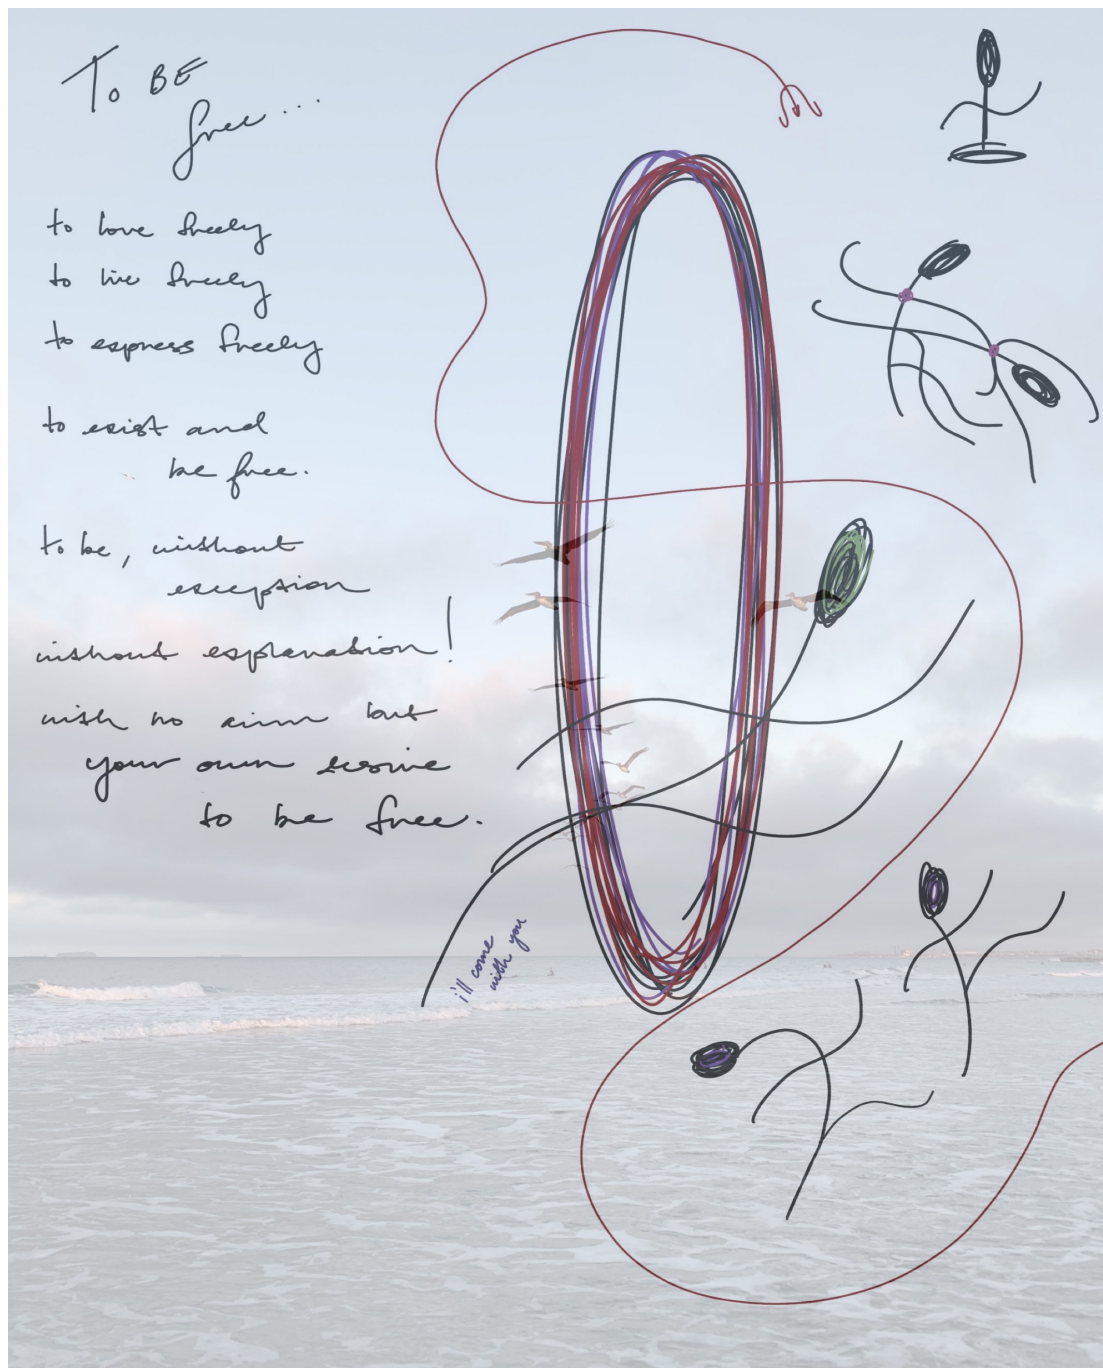 To BE
free...
to love freely
to live freely
to express freely
to exist and
be free.
to be, without
exception
without explanation!
with no aim but
your own
to be free.
i'll come
with you